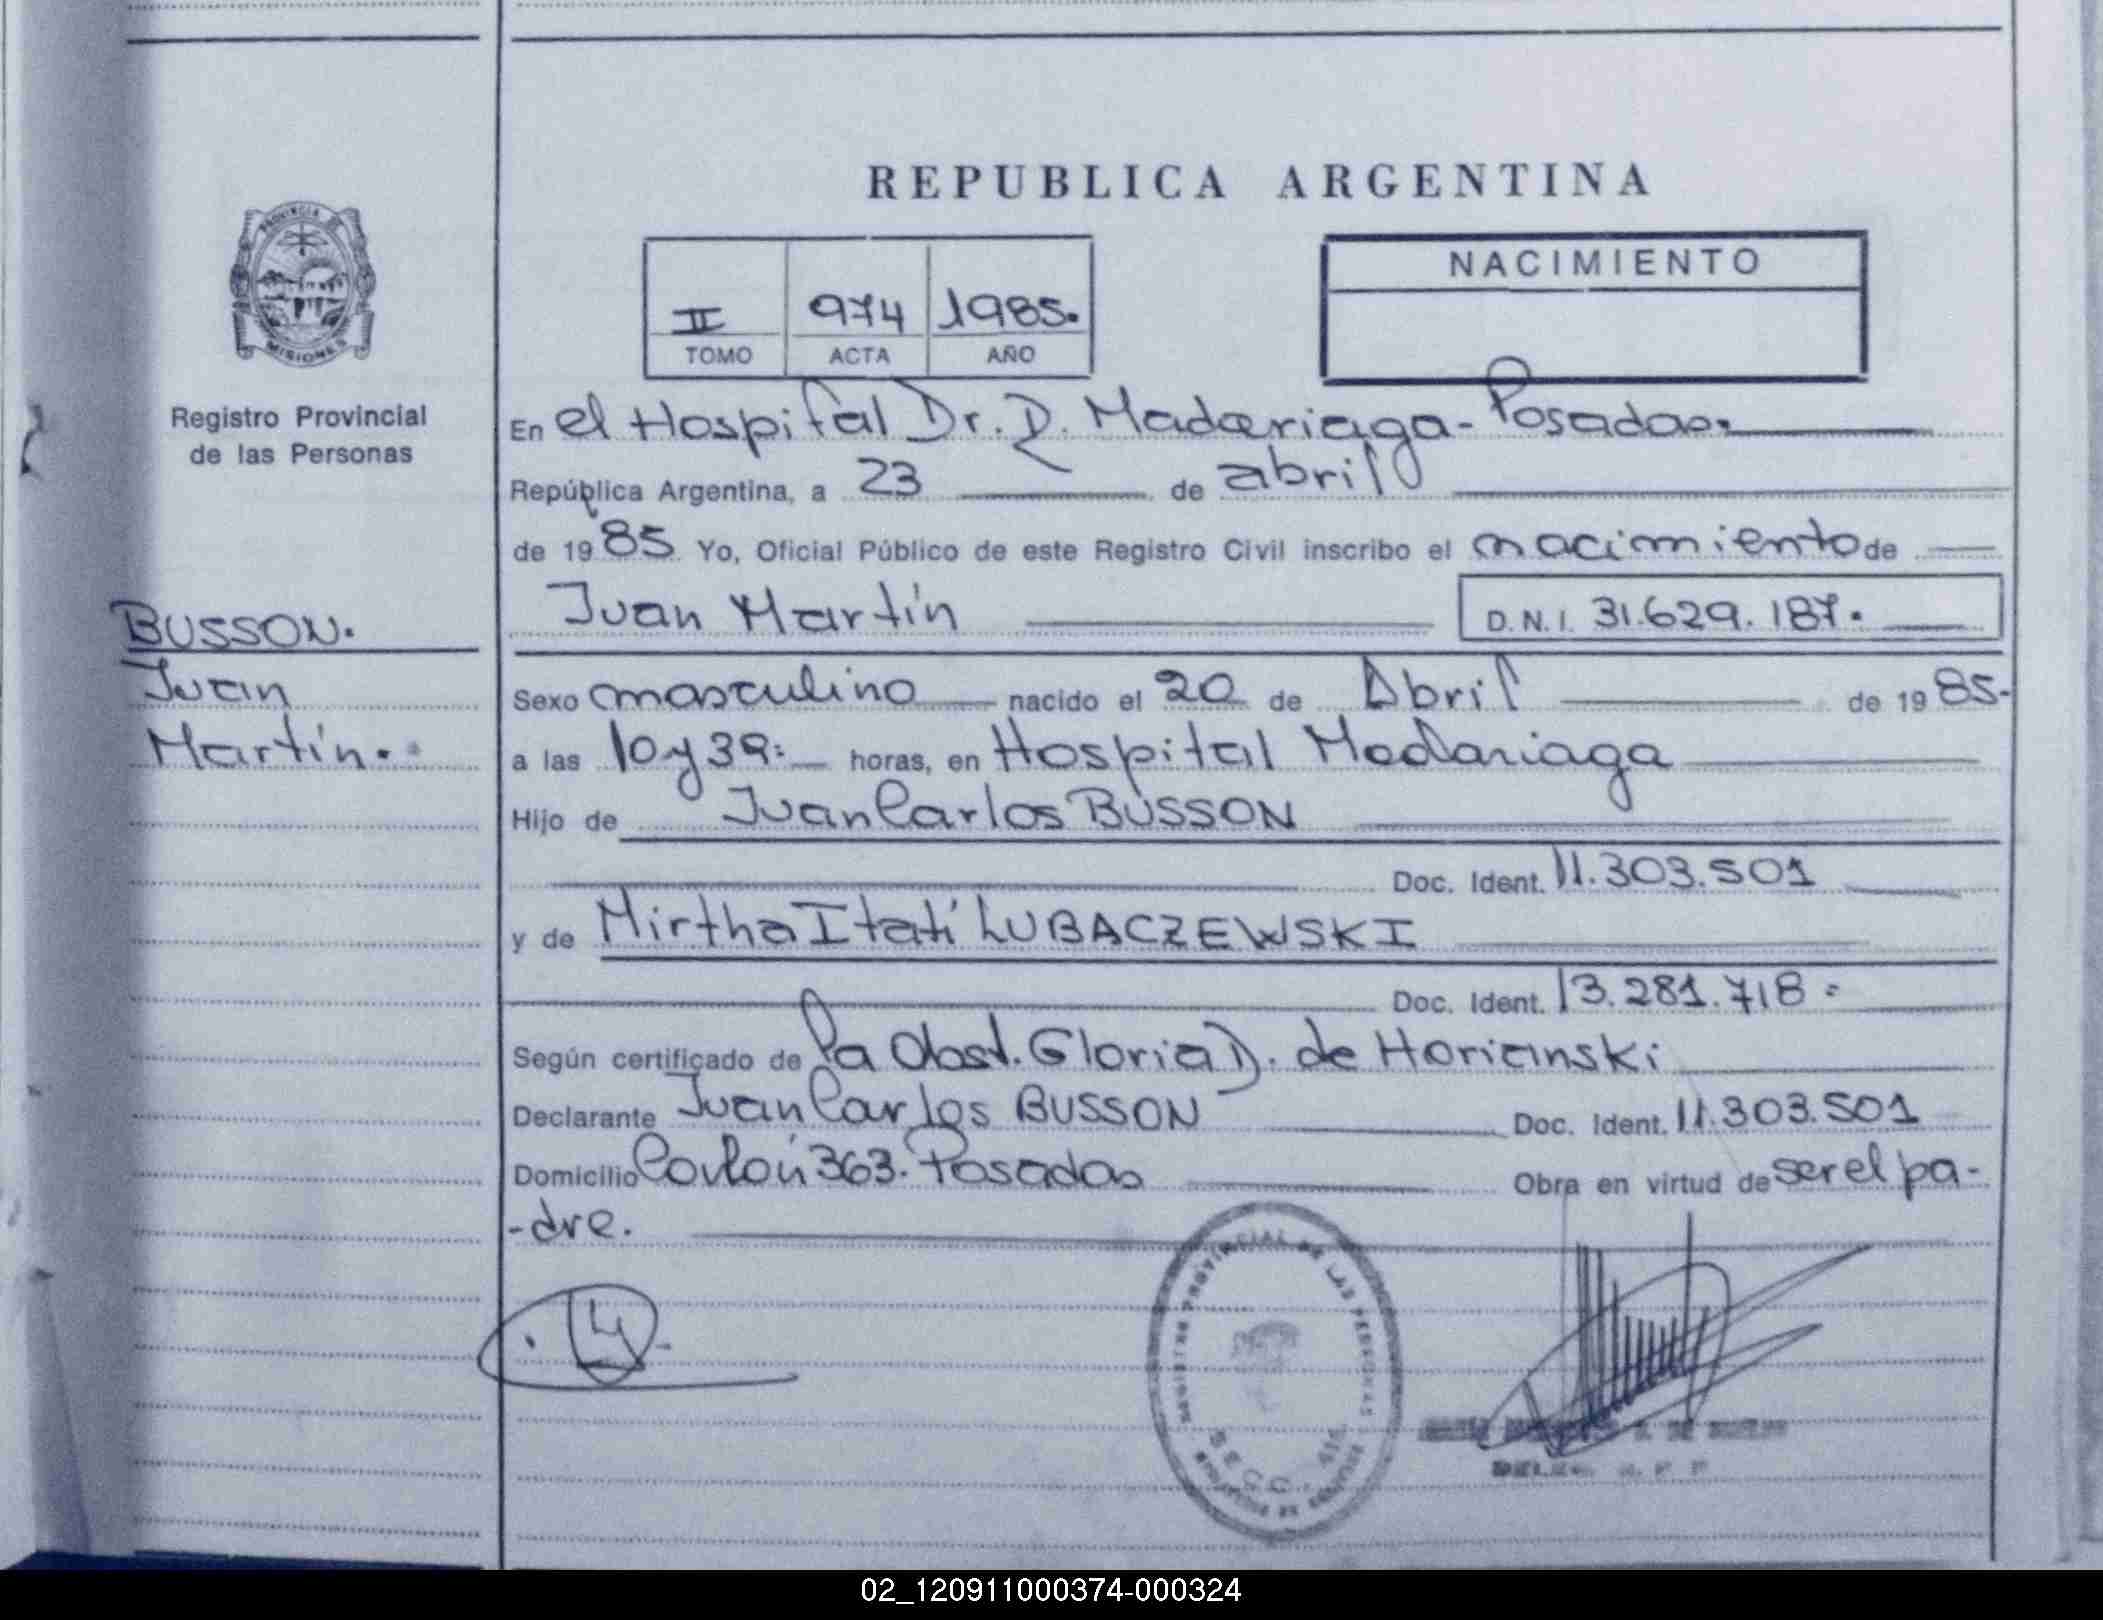 REPUBLICA ARGENTINA
PROVINCIA DE
MISIONES
Registro Provincial
de las Personas
BUSSON.
Juan
Martín.
II 974 1985.
TOMO ACTA AÑO
NACIMIENTO
En el Hospital Dr. R. Madariaga - Posadas.
República Argentina, a 23 de abril
de 1985 Yo, Oficial Público de este Registro Civil inscribo el nacimiento de
Juan Martín D.N.I. 31.629.187.
Sexo masculino nacido el 20 de Abril de 1985.
a las 10 y 39: horas, en Hospital Madariaga
Hijo de Juan Carlos BUSSON
Doc. Ident. 11.303.501
y de Mirtha Itatí LUBACZEWSKI
Doc. Ident. 13.281.718=
Según certificado de la Obst. Gloria D. de Horianski
Declarante Juan Carlos BUSSON Doc. Ident. 11.303.501
Domicilio 363. Posadas Obra en virtud de ser el pa-
-dre.
REGISTRO PROVINCIAL DE LAS PERSONAS
SECC.
02_120911000374-000324